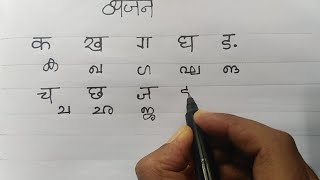 व्यंजन
क ख ग घ ङ
ക ഖ ഗ ഘ ങ
च छ ज
ച ഛ ജ